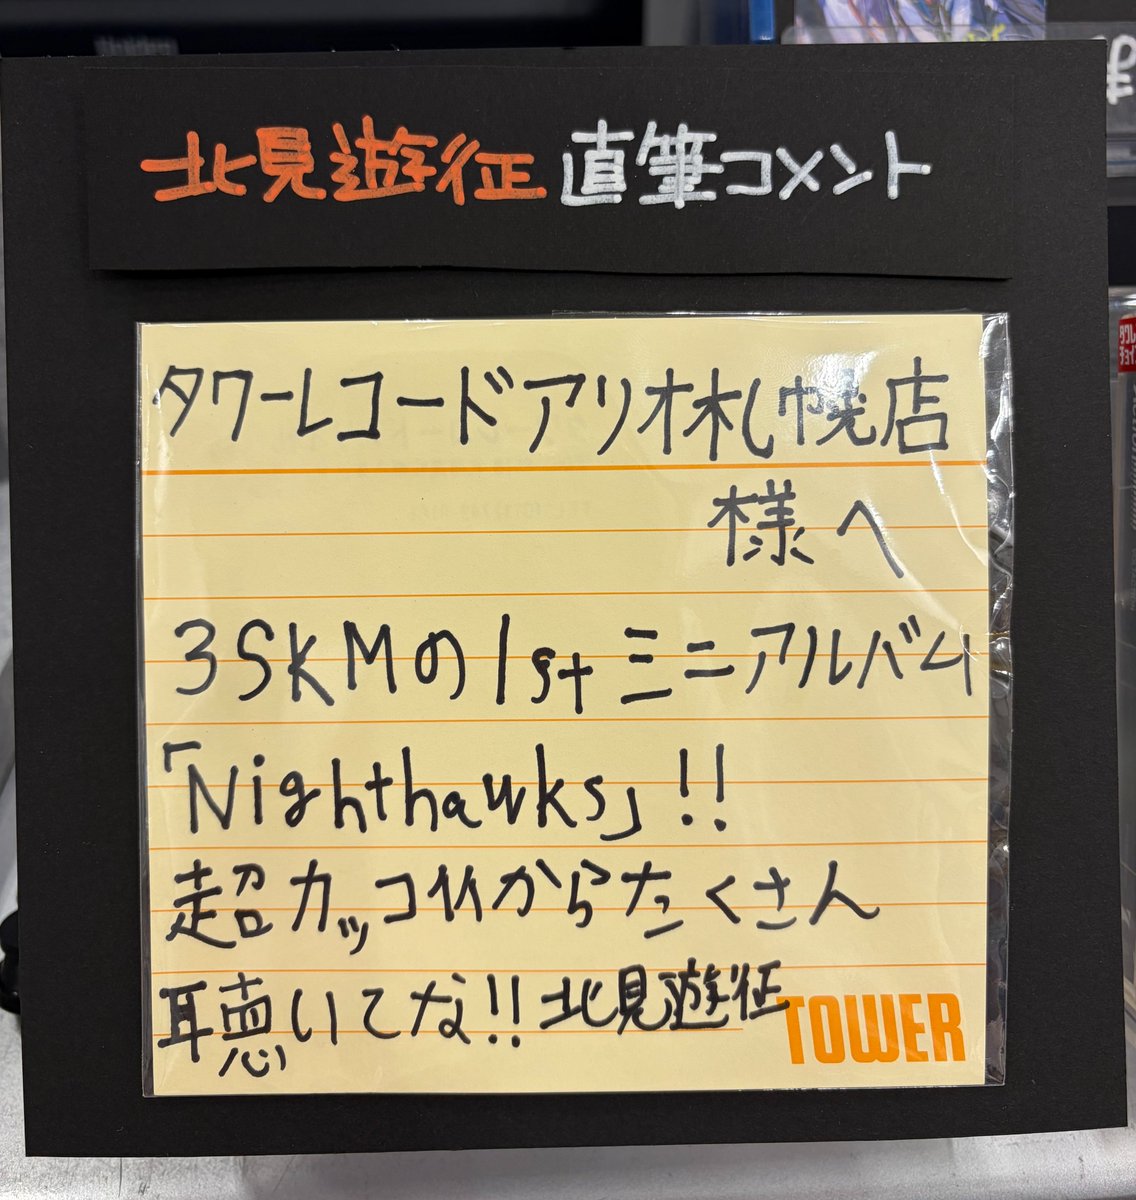 北見遊征 直筆コメント
タワーレコードアリオ札幌店
様へ
3SKMの1stミニアルバム
「Nighthawks」!!
超カッコイイからたくさん
聴いてな!! 北見遊征
TOWER